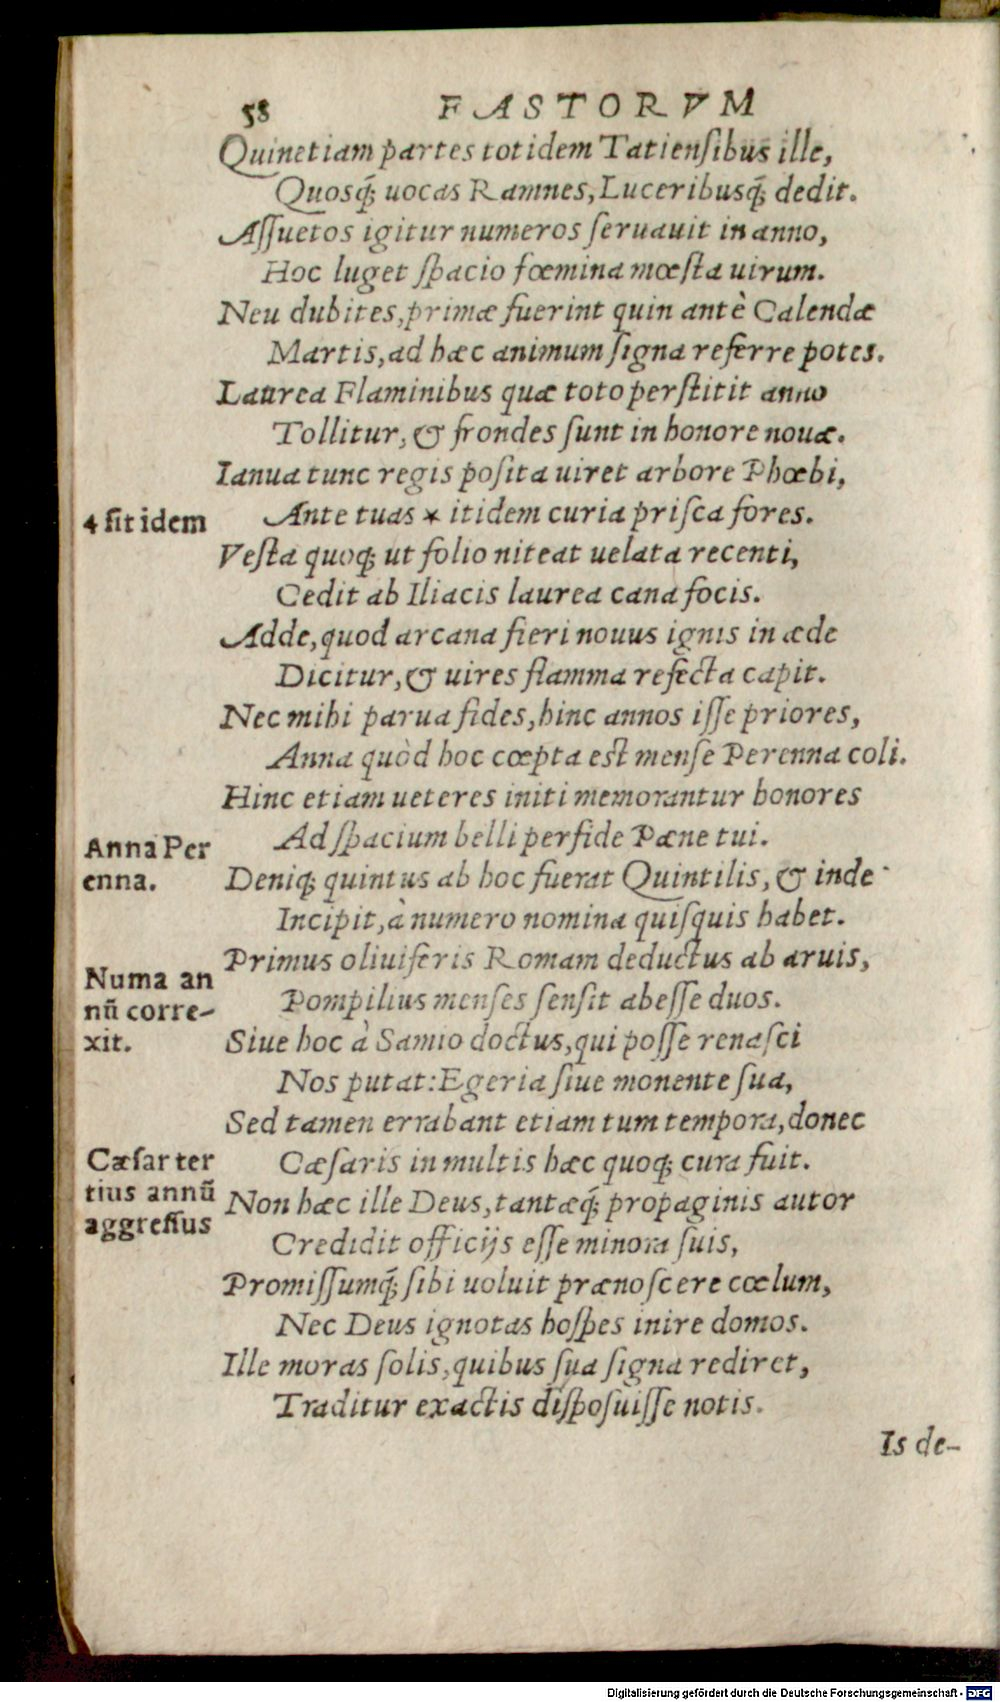 58 FASTORVM
Quinetiam partes totidem Tatiensibus ille,
Quosq́; uocas Ramnes, Luceribusq́; dedit.
Assuetos igitur numeros seruauit in anno,
Hoc luget spacio fœmina mœsta uirum.
Neu dubites, primæ fuerint quin antè Calendæ
Martis, ad hæc animum signa referre potes.
Laurea Flaminibus quæ toto perstitit anno
Tollitur, & frondes sunt in honore nouæ.
Ianua tunc regis posita uiret arbore Phœbi,
4 sit idem
Ante tuas * itidem curia prisca fores.
Vesta quoq; ut folio niteat uelata recenti,
Cedit ab Iliacis laurea cana focis.
Adde, quod arcana fieri nouus ignis in æde
Dicitur, & uires flamma refecta capit.
Nec mihi parua fides, hinc annos isse priores,
Anna quòd hoc cœpta est mense Perenna coli.
Hinc etiam ueteres initi memorantur honores
Ad spacium belli perfide Pœne tui.
Anna Per
enna.
Deniq; quintus ab hoc fuerat Quintilis, & inde
Incipit, à numero nomina quisquis habet.
Primus oliuiferis Romam deductus ab aruis,
Numa an
nũ corre-
xit.
Pompilius menses sensit abesse duos.
Siue hoc à Samio doctus, qui posse renasci
Nos putat: Egeria siue monente sua,
Sed tamen errabant etiam tum tempora, donec
Cæsar ter
tius annũ
aggressus
Cæsaris in multis hæc quoq; cura fuit.
Non hæc ille Deus, tantæq́; propaginis autor
Credidit officijs esse minora suis,
Promissumq́; sibi uoluit prænoscere cœlum,
Nec Deus ignotas hospes inire domos.
Ille moras solis, quibus sua signa rediret,
Traditur exactis disposuisse notis.
Is de-
Digitalisierung gefördert durch die Deutsche Forschungsgemeinschaft - DFG